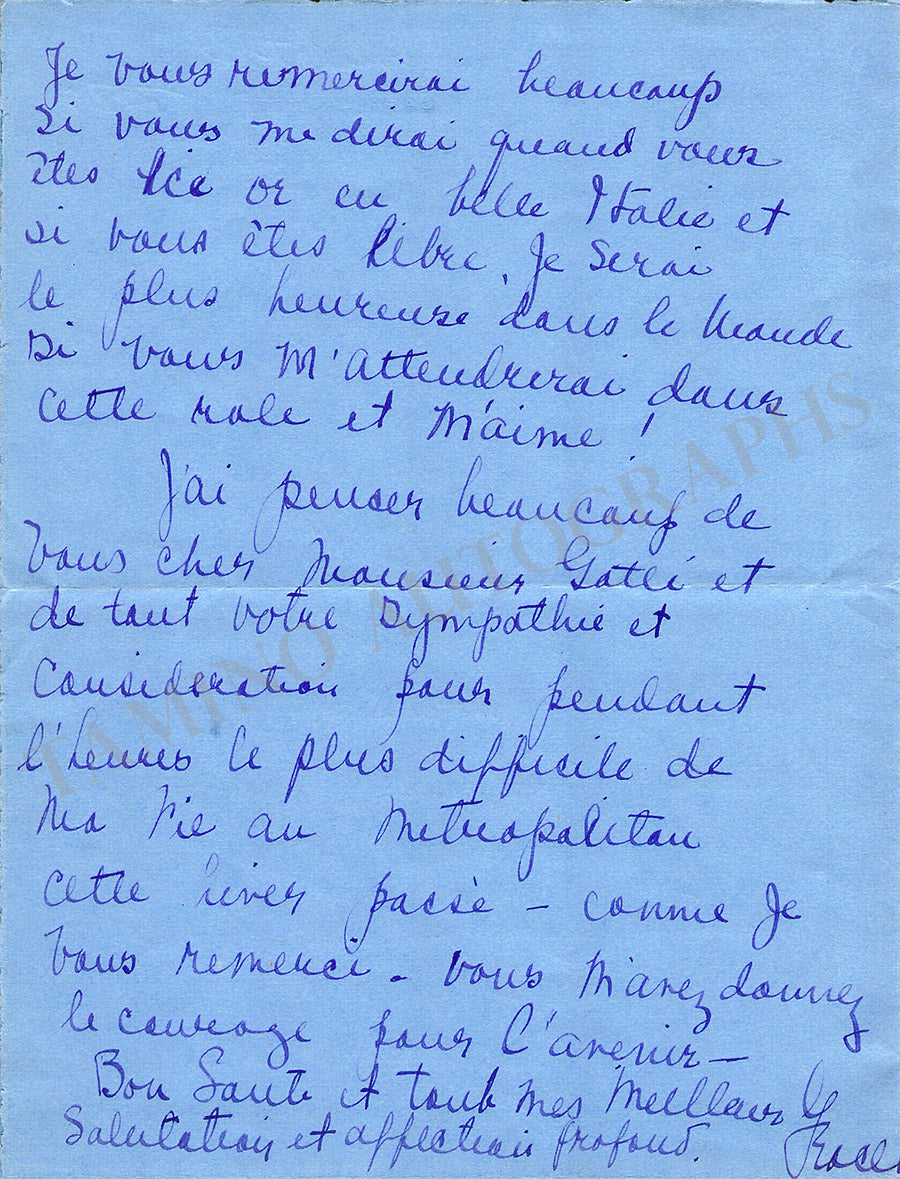 Je vous remercirai beaucoup
si vous me dirai quand vous
êtes ice or en belle Italie et
si vous êtes libre. Je serai
le plus heureuse dans le Monde
si vous M'attendrerai dans
cette role et M'aime!
J'ai penser beaucoup de
Vous cher Monsieur Gatti et
de tout votre sympathie et
Consideration pour pendant
l'heures le plus difficile de
Ma Vie au Metropolitan
cette hiver passè - comme Je
Vous remerci - vous M'avez donnez
le courage pour l'avenir -
Bon Sante et tout mes Meilleurs
Salutation et affection profond.
TAMINO AUTOGRAPHS